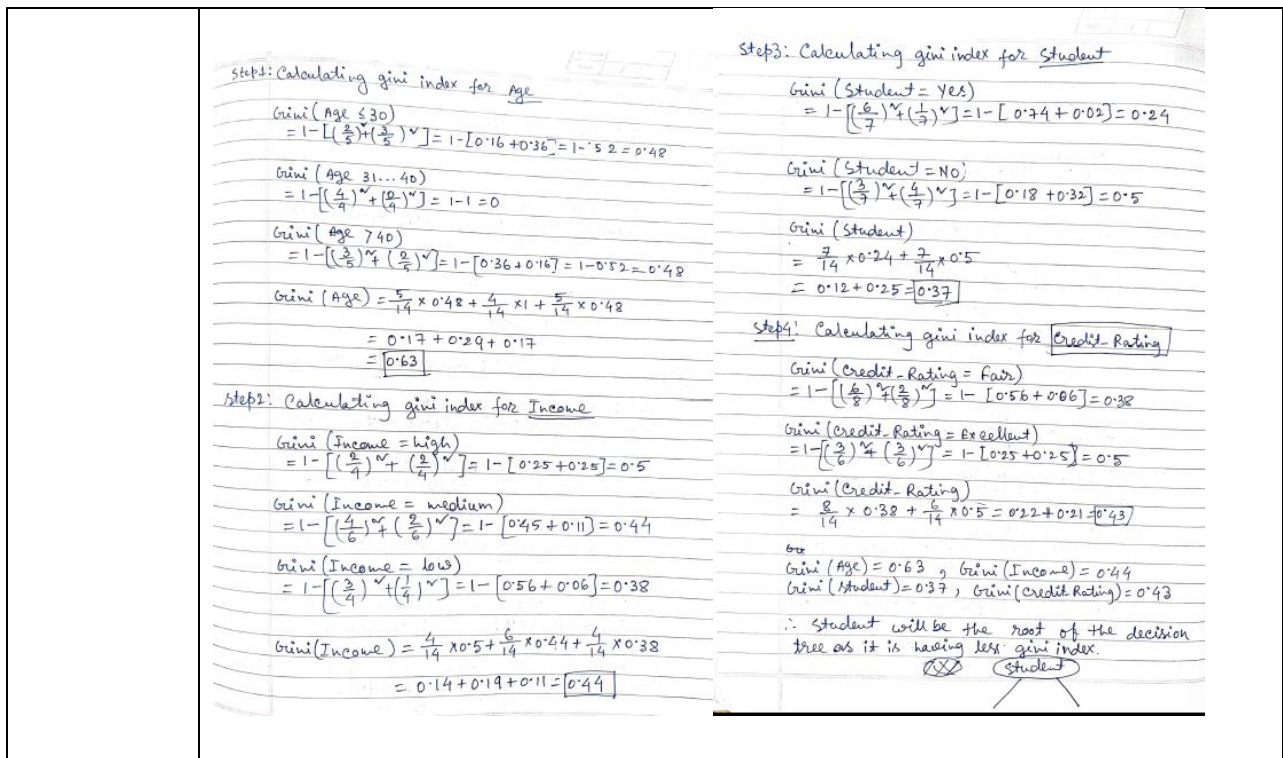 Step1: Calculating gini index for Age
Gini (Age ≤30)
= 1-[(2/5)²+(3/5)²] = 1-[0.16+0.36] = 1-.52 = 0.48
Gini (Age 31...40)
= 1-[(4/4)²+(0/4)²] = 1-1 = 0
Gini (Age >40)
= 1-[(3/5)²+(2/5)²] = 1-[0.36+0.16] = 1-0.52 = 0.48
Gini (Age) = 5/14 × 0.48 + 4/14 × 1 + 5/14 × 0.48
= 0.17 + 0.29 + 0.17
= 0.63
Step2: Calculating gini index for Income
Gini (Income = high)
= 1-[(2/4)²+(2/4)²] = 1-[0.25+0.25] = 0.5
Gini (Income = medium)
= 1-[(4/6)²+(2/6)²] = 1-[0.45+0.11] = 0.44
Gini (Income = low)
= 1-[(3/4)²+(1/4)²] = 1-[0.56+0.06] = 0.38
Gini (Income) = 4/14 × 0.5 + 6/14 × 0.44 + 4/14 × 0.38
= 0.14 + 0.19 + 0.11 = 0.44
Step3: Calculating gini index for Student
Gini (Student = Yes)
= 1-[(6/7)²+(1/7)²] = 1-[0.74+0.02] = 0.24
Gini (Student = No)
= 1-[(3/7)²+(4/7)²] = 1-[0.18+0.32] = 0.5
Gini (Student)
= 7/14 × 0.24 + 7/14 × 0.5
= 0.12 + 0.25 = 0.37
Step4: Calculating gini index for Credit-Rating
Gini (Credit-Rating = Fair)
= 1-[(6/8)²+(2/8)²] = 1-[0.56+0.06] = 0.38
Gini (Credit-Rating = Excellent)
= 1-[(3/6)²+(3/6)²] = 1-[0.25+0.25] = 0.5
Gini (Credit-Rating)
= 8/14 × 0.38 + 6/14 × 0.5 = 0.22 + 0.21 = 0.43
Gini (Age) = 0.63, Gini (Income) = 0.44
Gini (Student) = 0.37, Gini (Credit Rating) = 0.43
∴ Student will be the root of the decision
tree as it is having less gini index.
Student